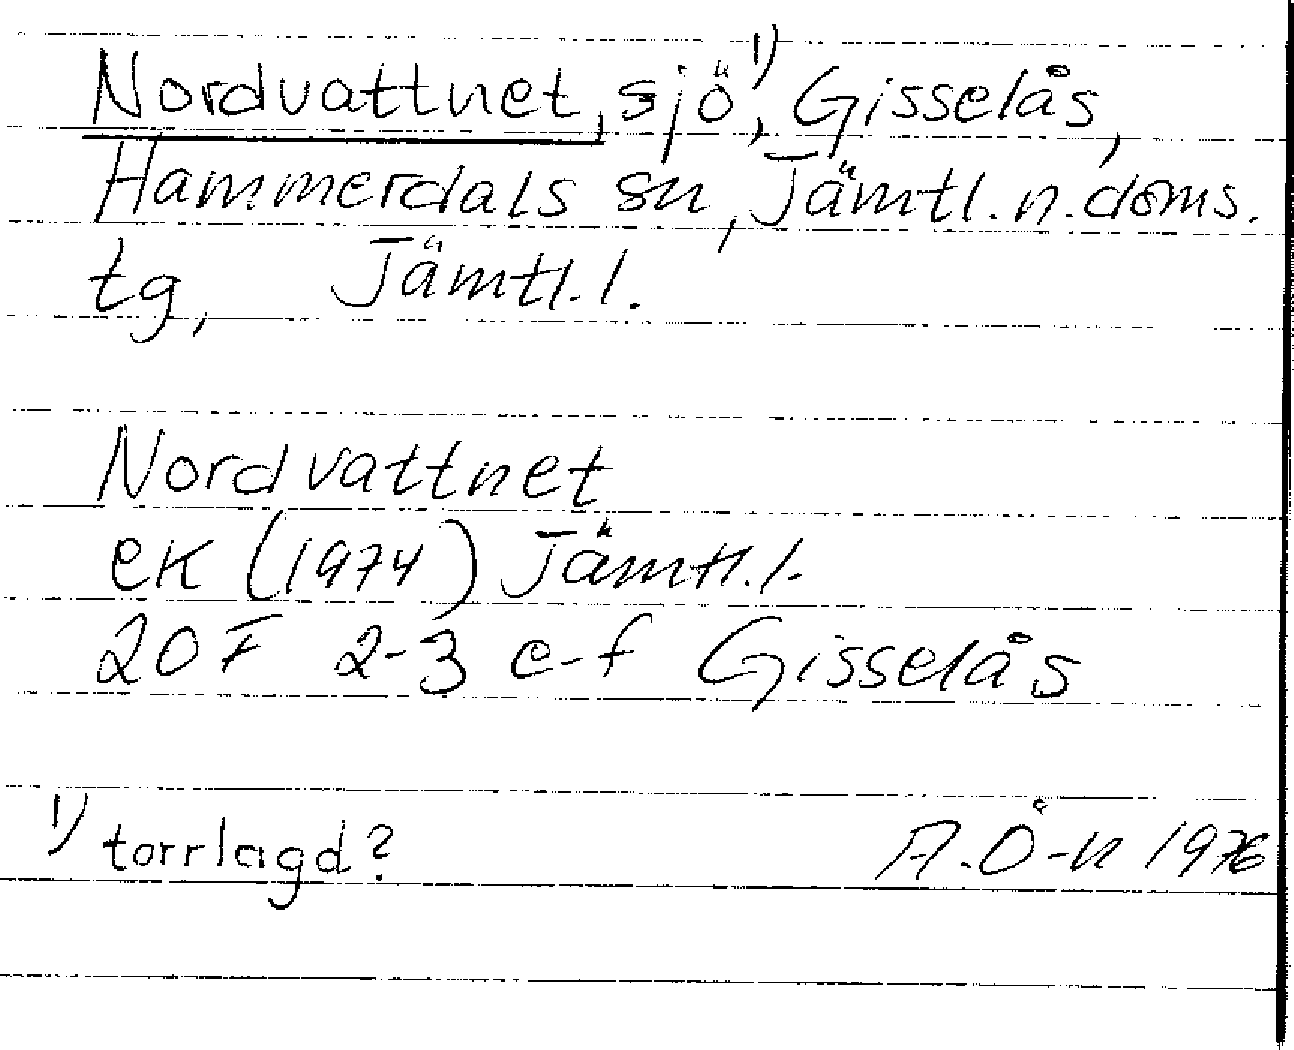 Nordvattnet, sjö 1), Gisselås,
Hammerdals sn, Jämtl. n. doms.
tg, Jämtl. l.
Nordvattnet
ek (1974) Jämtl. l.
20F 2-3 e-f Gisselås
1) torrlagd?
A.Ö-n 1976